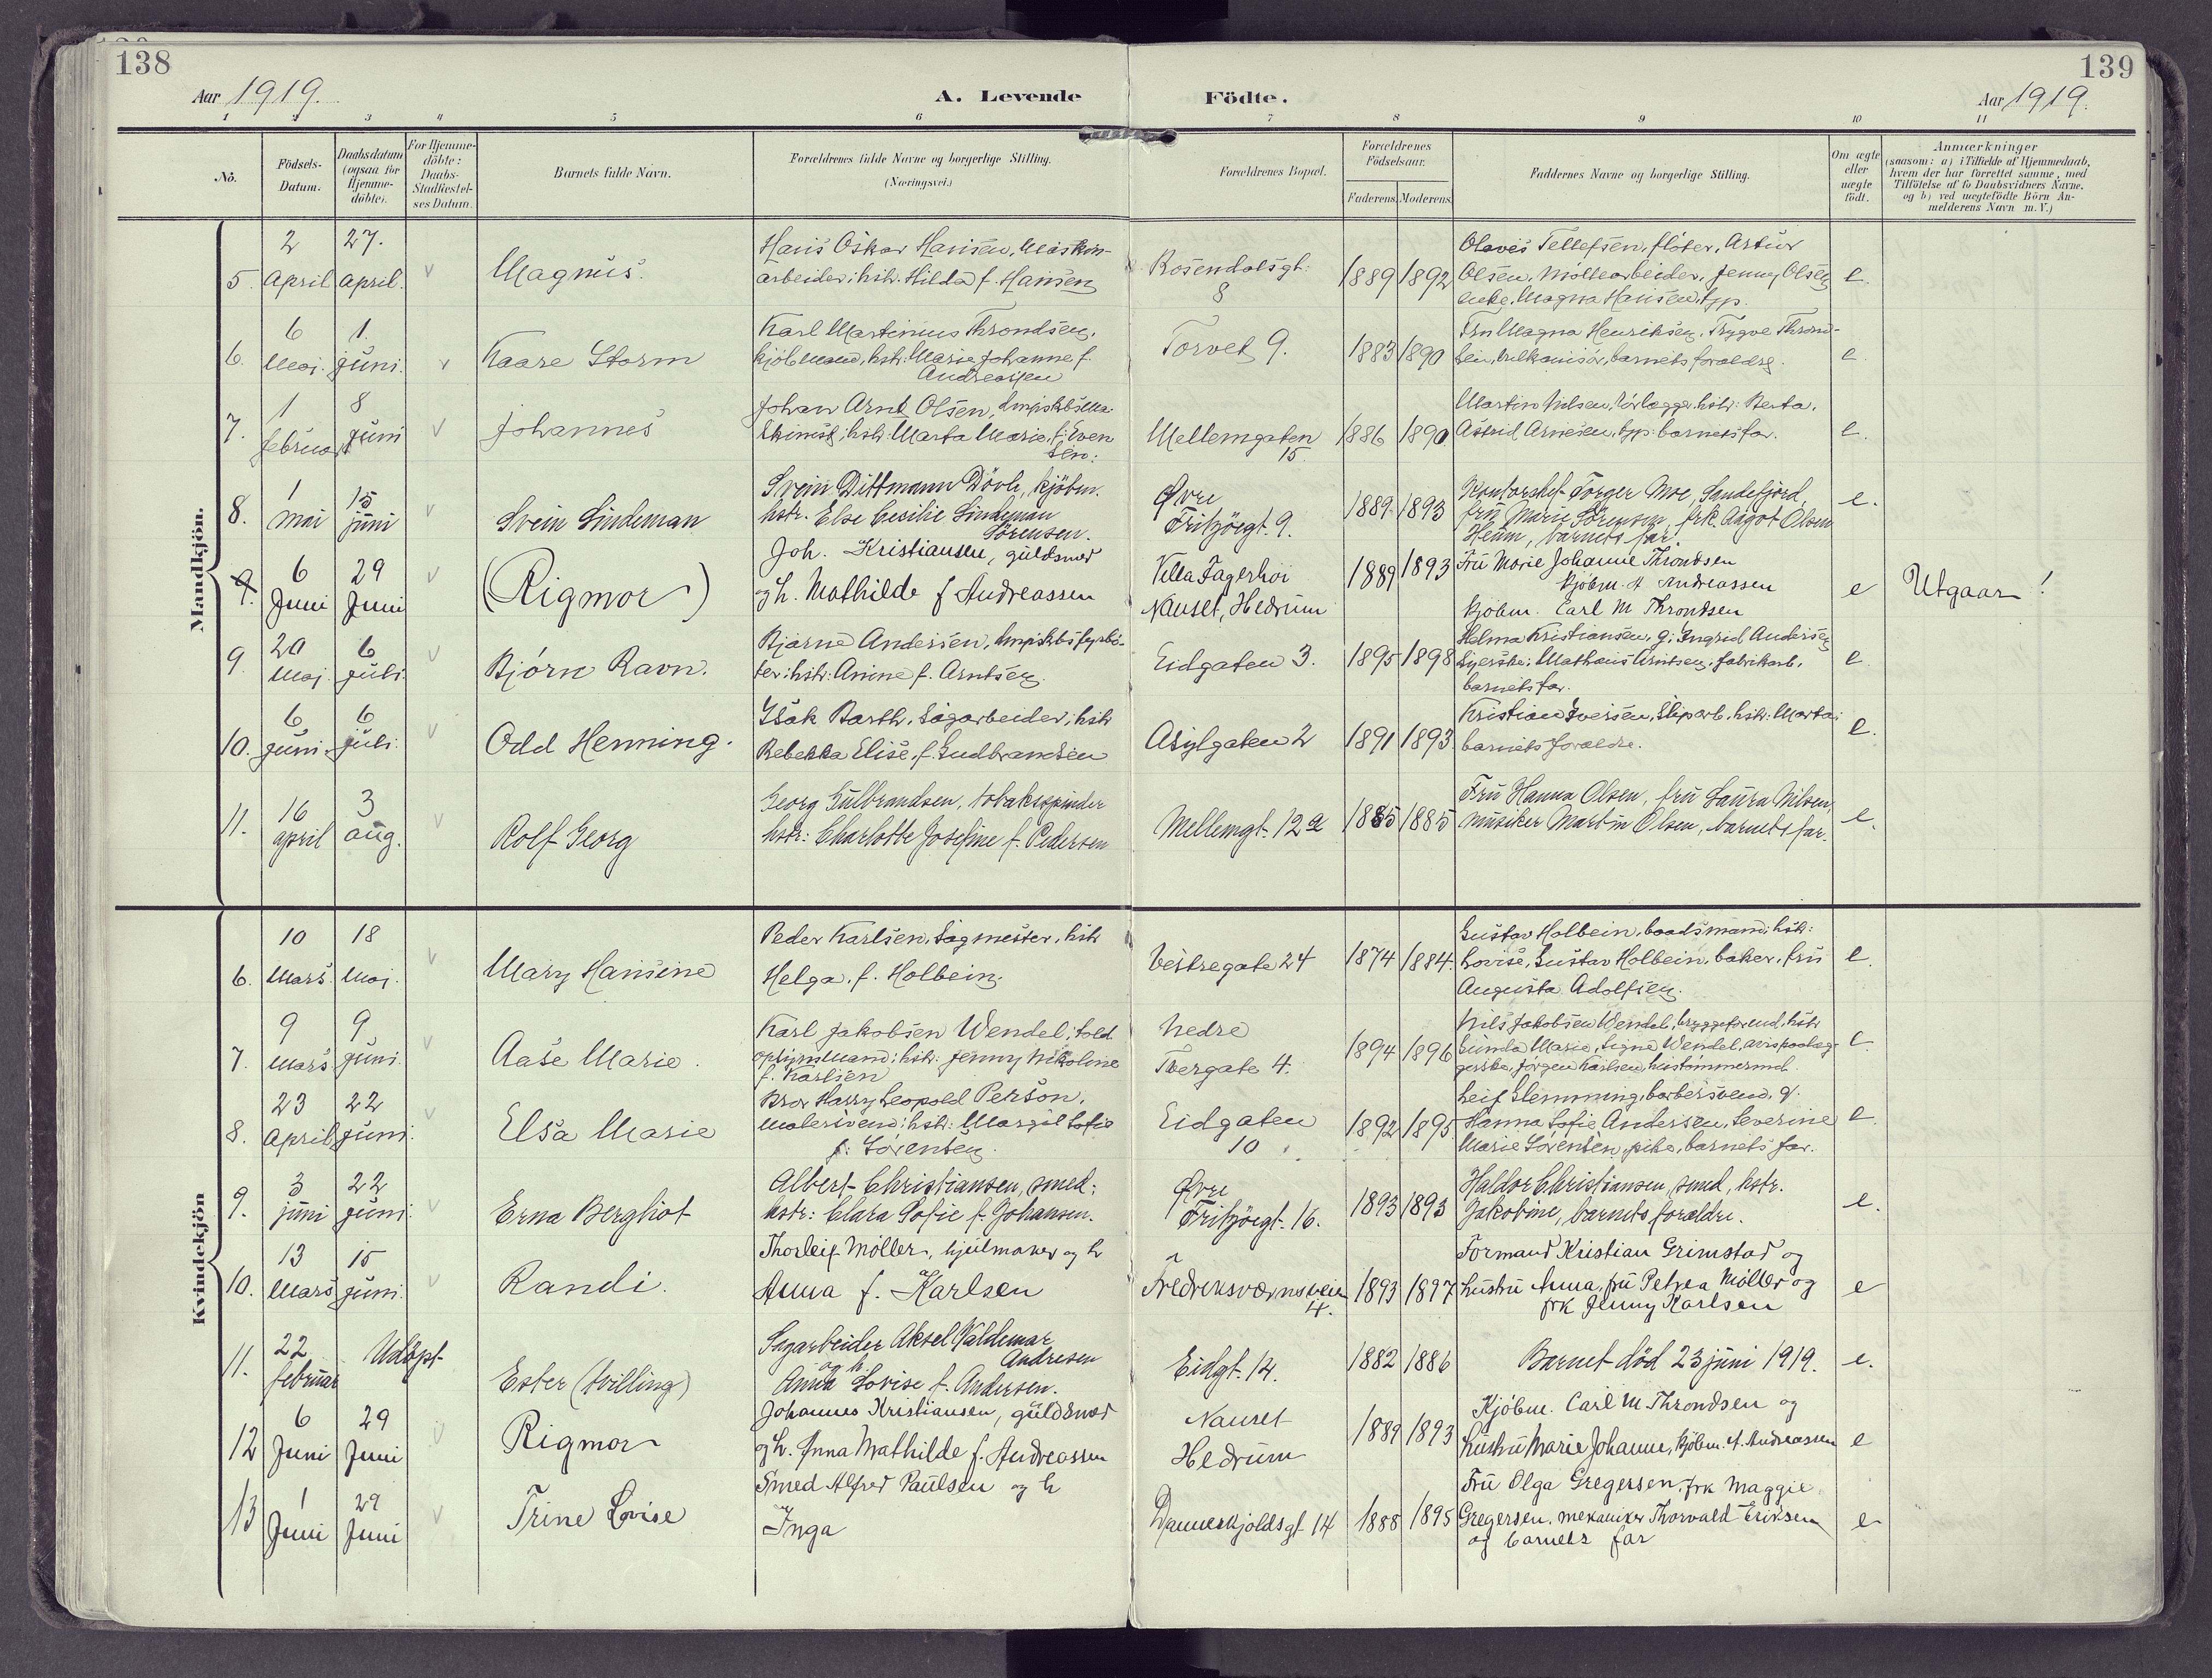 138
139
Aar 1919.
A. Levende
Födte.
Aar 1919.
1 2 3 4 5 6 7 8 9 10 11
Nô.
Födsels-
Datum.
Daabsdatum
(ogsaa for
Hjemme-
döbte).
For Hjemme-
döbte:
Daabs-
Stadfæstel-
ses Datum.
Barnets fulde Navn.
Forældrenes fulde Navne og borgerlige Stilling.
(Næringsvei.)
Forældrenes Bopæl.
Forældrenes
Födselsaar.
Faderens. Moderens.
Faddernes Navne og borgerlige Stilling.
Om ægte
eller
uægte
födt.
Anmærkninger
(saasom: a) i Tilfælde af Hjemmedaab,
hvem der har forrettet samme, med
Tilföielse af to Daabsvidners Navne.
og b) ved uægtefödte Börn An-
melderens Navn m. V.)
Mandkjön.
5. 2 April 27. April. v Magnus.
Hans Oskar Hansen, Maskin-
arbeider; hstr. Hilda f. Hansen
Rosendalsgt.
8
1889 1892
Olaves Tellefsen, fløter, Artur
Olsen, Møllearbeider, Jenny Olsen
enke, Magna Hansen, tjp.
e.
6. 6 Maj. 1. Juni. v Kaare Storm
Karl Martinius Throndsen,
kjöbmand, hstr: Marie Johanne f.
Andreassen
Torvet 9.
1883 1890
Fru Magna Henriksen, Trygve Thrond-
sen, vulkanisör, barnets forældre.
e.
7. 1 februar 8 Juni v Johannes
Johan Arnt Olsen,
hstr. Marta Marie, f. Even
sen.
Mellemgaten
15.
1886 1890.
Martin Nilsen, rörlægger, hstr: Berta,
Astrid Arnesen, tjp. barnets far.
e.
8. 1 mai 15 juni v Svein Lindeman
Svein Dittmann Dövle, kjöbm.
hstr. Else Cecilie Lindeman
Sörensen.
Øvre
Fritzöegt. 9.
1889 1893
Kontorchef Torger Moe, Sandefjord,
fru Marie Sörensen, frk. Aagot Olsen
Heum, barnets far.
e.
9. 6 Juni 29 Juni v (Rigmor)
Joh. Kristiansen, guldsmed
og h. Mathilde f Andreassen
Villa Fagerhöi
Nauset, Hedrum
1889 1893
Fru Marie Johanne Throndsen
kjöbm. A Andreassen
kjöbm. Carl M Throndsen
e Utgaar!
9. 20 Maj. 6 Juli. v Björn Ravn.
Bjarne Andersen, dmpskbsfyrbö-
ter; hstr: Anine f. Arntsen.
Eidgaten 3.
1895 1898
Helma Kristiansen, g; Ingrid Andersen
syerske; Mathæus Arntsen, fabrikarb.
barnets far.
e.
10. 6 Juni. 6 Juli. v Odd Henning.
Isak Barth, Sagarbeider; hstr
Rebekka Elise, f. Gudbrandsen
Asylgaten 2
1891 1893
Kristian Iversen, Sliparb. hstr. Marta;
barnets forældre.
e.
11. 16 april 3 aug. v Rolf Georg
Georg Gulbrandsen, tobakspinder
hstr: Charlotte Josefine f. Pedersen
Mellemgt. 12a
1885 1885
Fru Hanna Olsen, fru Laura Nilsen,
musiker Martin Olsen, barnets far.
e.
Kvindekjön
6. 10 Mars 18 Maj. v Mary Hansine
Peder Karlsen, Sagmester, hstr
Helga, f. Holbein.
Vestregate 24
1874 1884.
Gustav Holbein, baadsmand, hstr:
Lovise, Gustav Holbein, baker, fru
Augusta Adolfsen.
e.
7. 9 Mars 9 Juni. v Aase Marie.
Karl Jakobsen Wendel; told
opsynsmand; hstr: Jenny Nikoline
f. Karlsen
Nedre
Tvergate 4.
1894 1896
Nils Jakobsen Wendel, bryggeformd, hstr
Gunda Marie, Signe Wendel,
Jörgen Karlsen,
e.
8. 23 April 22 Juni. v Elsa Marie
Bror Harry Leopold Person,
Malersvend; hstr: Margit Sofie
f: Sörensen.
Eidgaten
10
1892 1895
Leif Flemming, barbersvend, g.
Hanna Sofie Andersen, Severine
Marie Sörensen, pike, barnets far.
e.
9. 3 juni 22 juni v Erna Bergliot
Albert Christiansen, smed;
hstr: Clara Sofie f. Johansen.
Øvre
Fritzöegt. 16.
1893 1893
Haldor Christiansen, smed, hstr.
Jakobine, barnets forældre.
e.
10. 13 Mars 15 Juni. v Randi.
Thorleif Möller, hjulmaker og h
Anna f. Karlsen
Fredriksværnsveien
4.
1893 1897
Formand Kristian Grimstad og
hustru Anna, fru Petrea Möller og
frk Jenny Karlsen
e
11. 22 februar Udöpt Ester (tvilling)
Sagarbeider Aksel Valdemar
Andresen
og h.
Anna Lovise f. Andersen.
Eidgt. 14.
1882 1886
Barnet död 23 juni 1919.
e.
12 6 Juni 29 Juni v Rigmor
Johannes Kristiansen, guldsmed
og h. Anna Mathilde f. Andreassen
Nauset
Hedrum
1889 1893
Kjöbm. Carl M Throndsen og
hustru Marie Johanne, kjöbm. A. Andreassen
e
13 1 Juni 29 Juni v Trine Lovise
Smed Alfred Paulsen og h
Inga
Danneskjoldsgt 14
1888 1895
Fru Olga Gregersen, frk Maggie
Gregersen, mekaniker Thorvald Eriksen
og barnets far
e